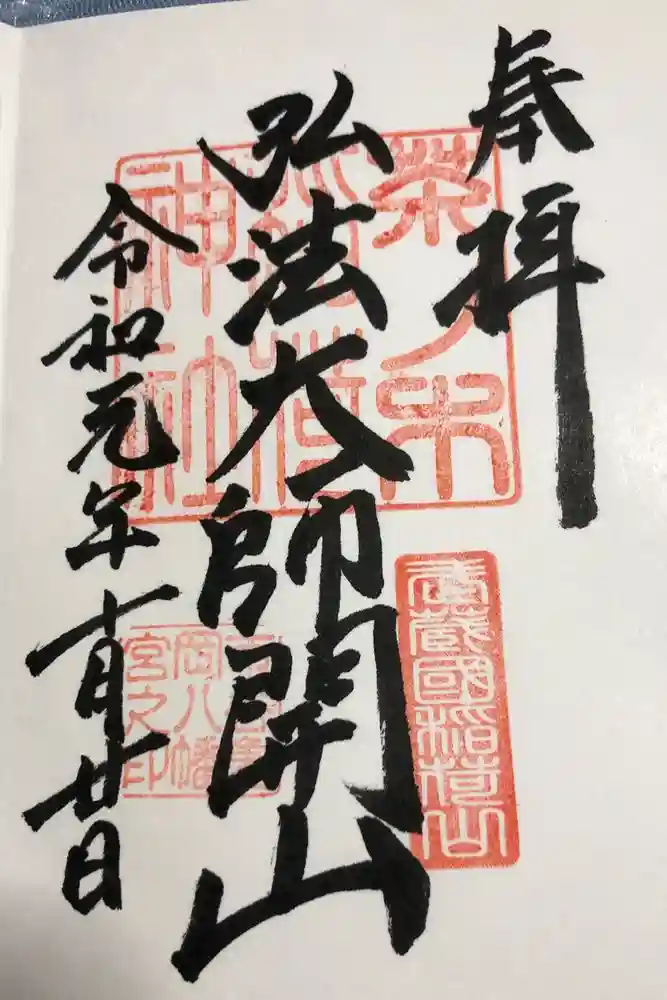 奉拝
弘法大師開山
令和元年十月廿日
武蔵國稲荷山
神社
岡八幡
宮之印